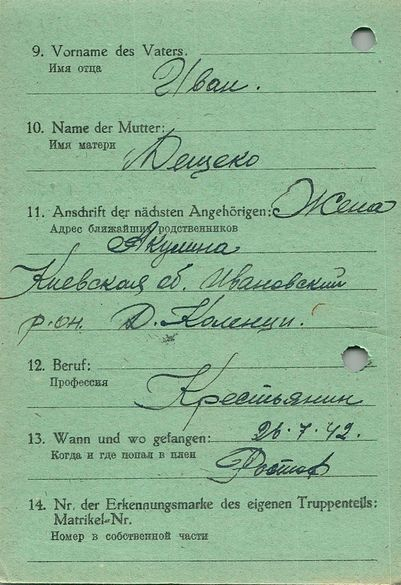 9. Vorname des Vaters.
Имя отца
Иван.
10. Name der Mutter:
Имя матери
Мещеко
11. Anschrift der nächsten Angehörigen: Жена
Адрес ближайших родственников
Акулина
Киевская об. Ивановский
р-он. Д. Коленци.
12. Beruf:
Профессия
Крестьянин
13. Wann und wo gefangen: 26.7.42.
Когда и где попал в плен
Ростов
14. Nr. der Erkennungsmarke des eigenen Truppenteils:
Matrikel-Nr.
Номер в собственной части